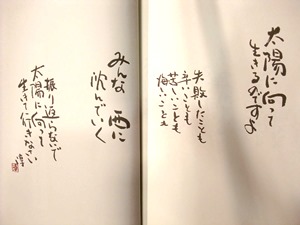 太陽に向って
生きるのですよ
失敗したことも
辛いことも
苦しいことも
悔しいことも
みんな 西に
沈んでいく
振り返らないで
太陽に向って
生きて行きなさい